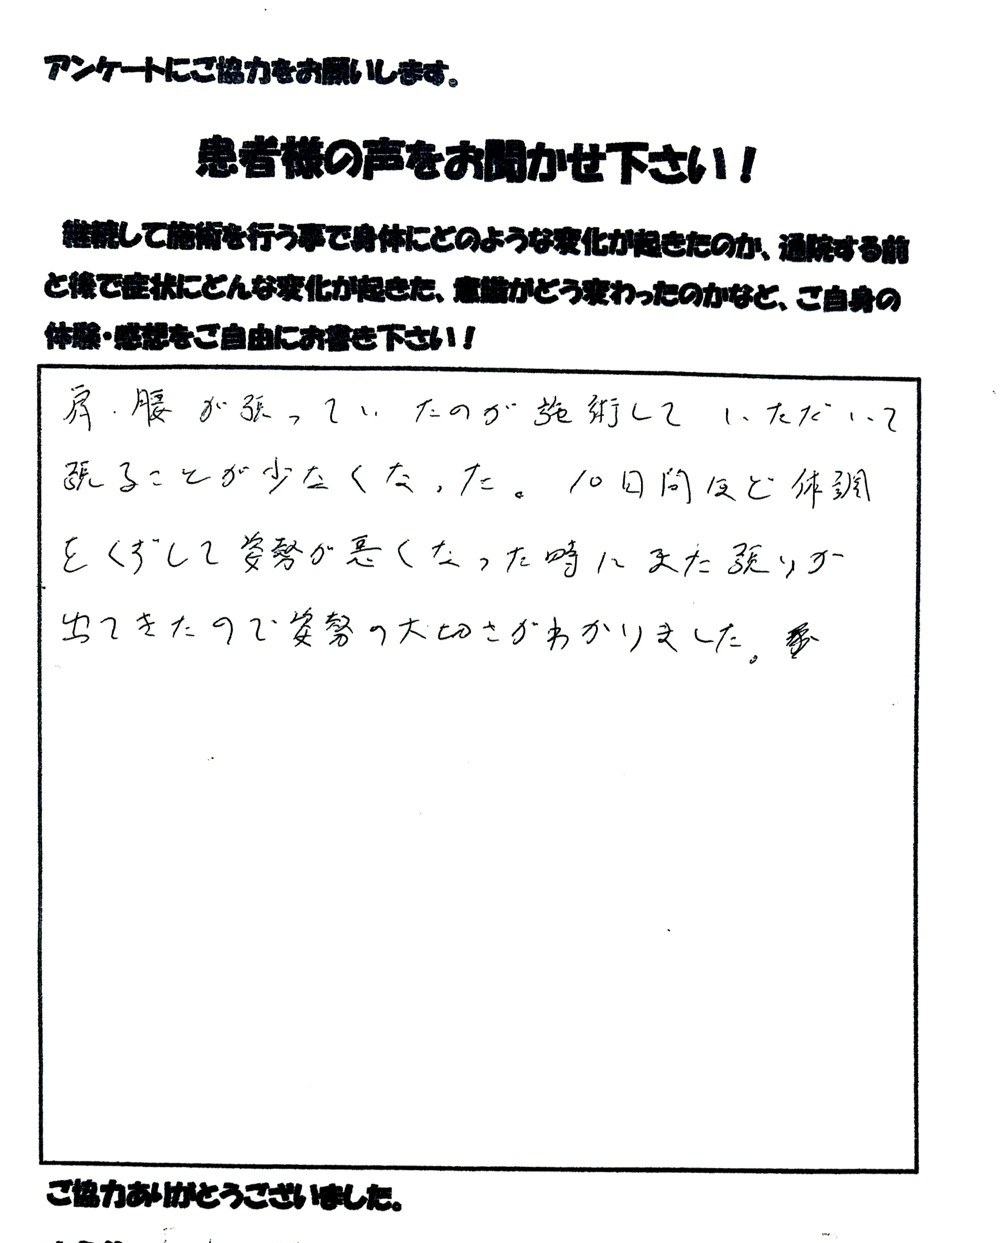 アンケートにご協力をお願いします。
患者様の声をお聞かせ下さい！
継続して施術を行う事で身体にどのような変化が起きたのか、通院する前
と後で症状にどんな変化が起きた、意識がどう変わったのかなど、ご自身の
体験・感想をご自由にお書き下さい！
肩・腰が張っていたのが施術していただいて
張ることが少なくなった。10日間ほど体調
をくずして姿勢が悪くなった時にまた張りが
出てきたので姿勢の大切さがわかりました。
ご協力ありがとうございました。